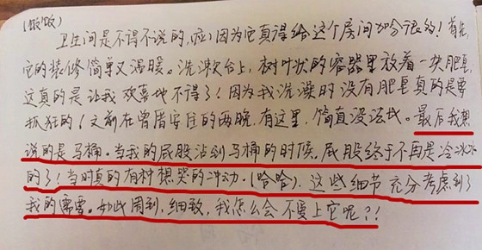 (嗷嗷)
卫生间是不得不说的,啦!因为它真得给这个房间加分很的!首先
它的装修简单又温暖。洗漱台上,树叶状的容器里放着一块肥皂
这真的是让我欢喜地不得了!因为我洗澡时没有肥皂真的是要
抓狂的!之前在曾厝安住的两晚,有这里,简直没法比。最后我想
说的是马桶。当我的屁股沾到马桶的时候,屁股终于不再是冷冰冰
的了!当时真的有种想哭的冲动。(哈哈)。这些细节充分考虑到了
我的需要。如此周到,细致,我怎么会不爱上它呢?!